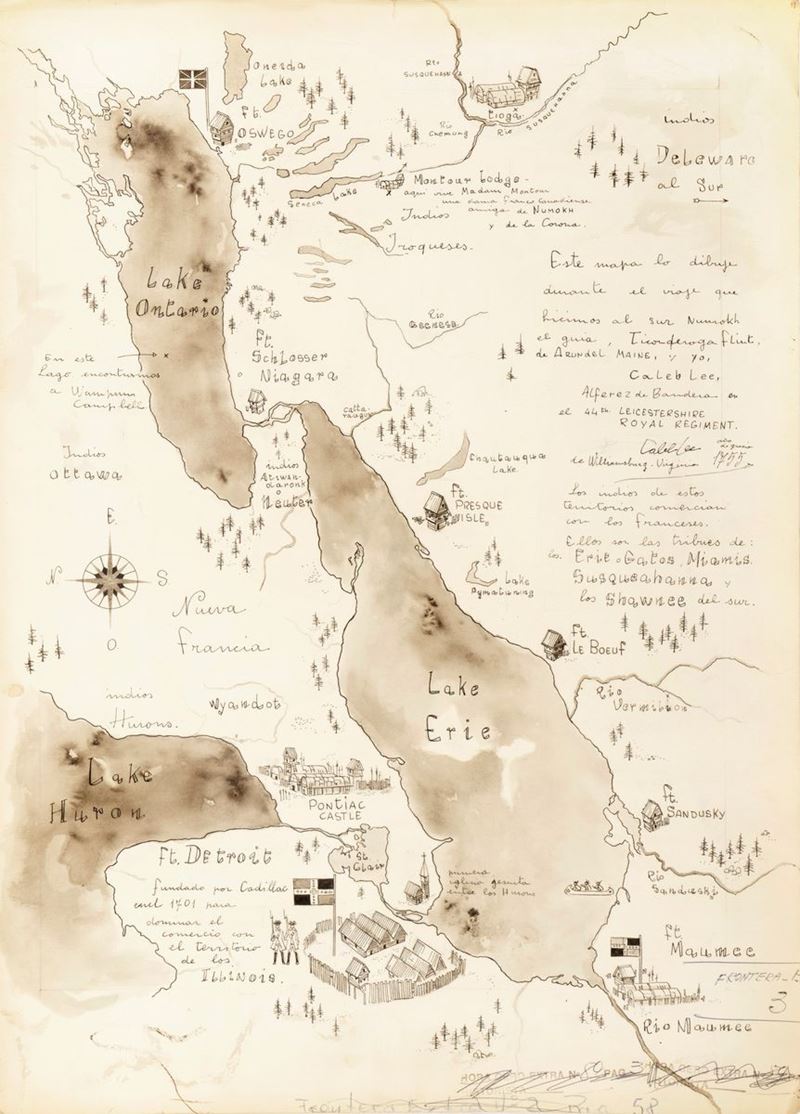 Oneida
Lake
ft.
OSWEGO
Rio
SUSQUEHANNA
tioga
Rio SUSQUEHANNA
Rio
Chemung
Seneca Lake
Montour Lodge-
aqui vive Madam Montour
una dama Franco Canadiense
amiga de NUMOKH
y de la Corona.
Indios
Iroqueses.
indios
DeLeware
al Sur
Este mapa lo dibuje
durante el viaje que
hicimos al sur Numokh
el guia, Ticonderoga Flint,
de ARUNDEL MAINE, y yo,
CaLeb Lee,
Alferez de Bandera en
el 44th LEICESTERSHIRE
ROYAL REGIMENT.
Caleb Lee
de Williamsburg-Virginia 1755
Los indios de estos
territorios comercian
con los franceses.
Ellos son las tribues de:
los Erie o Gatos, Miamis,
Susqueahanna y
los Shawnee del sur.
Lake
Ontario
Rio
Genesee
ft.
Schlosser
Niagara
En este
Lago encontramos
a Wampum
Campbell
Indios
Ottawa
catta-
raugus
indios
Neuter
Chautauqua
Lake
ft.
PRESQUE
ISLE
Lake
Pymatuning
E.
N. S.
O
Nueva
Francia
ft.
LE BOEUF
Lake
Erie
Rio
Vermilion
indios
Hurons.
Wyandot
Lake
Huron
PONTIAC
CASTLE
ft.
SANDUSKY
Rio
Sandusky
St
Clair
ft. Detroit
fundado por Cadillac
en el 1701 para
dominar el
comercio con
el territorio
de los
ILLinois.
primera
iglesia jesuita
entre los Hurons
ft.
Maumee
FRONTERA-
3
Rio Maumee
58